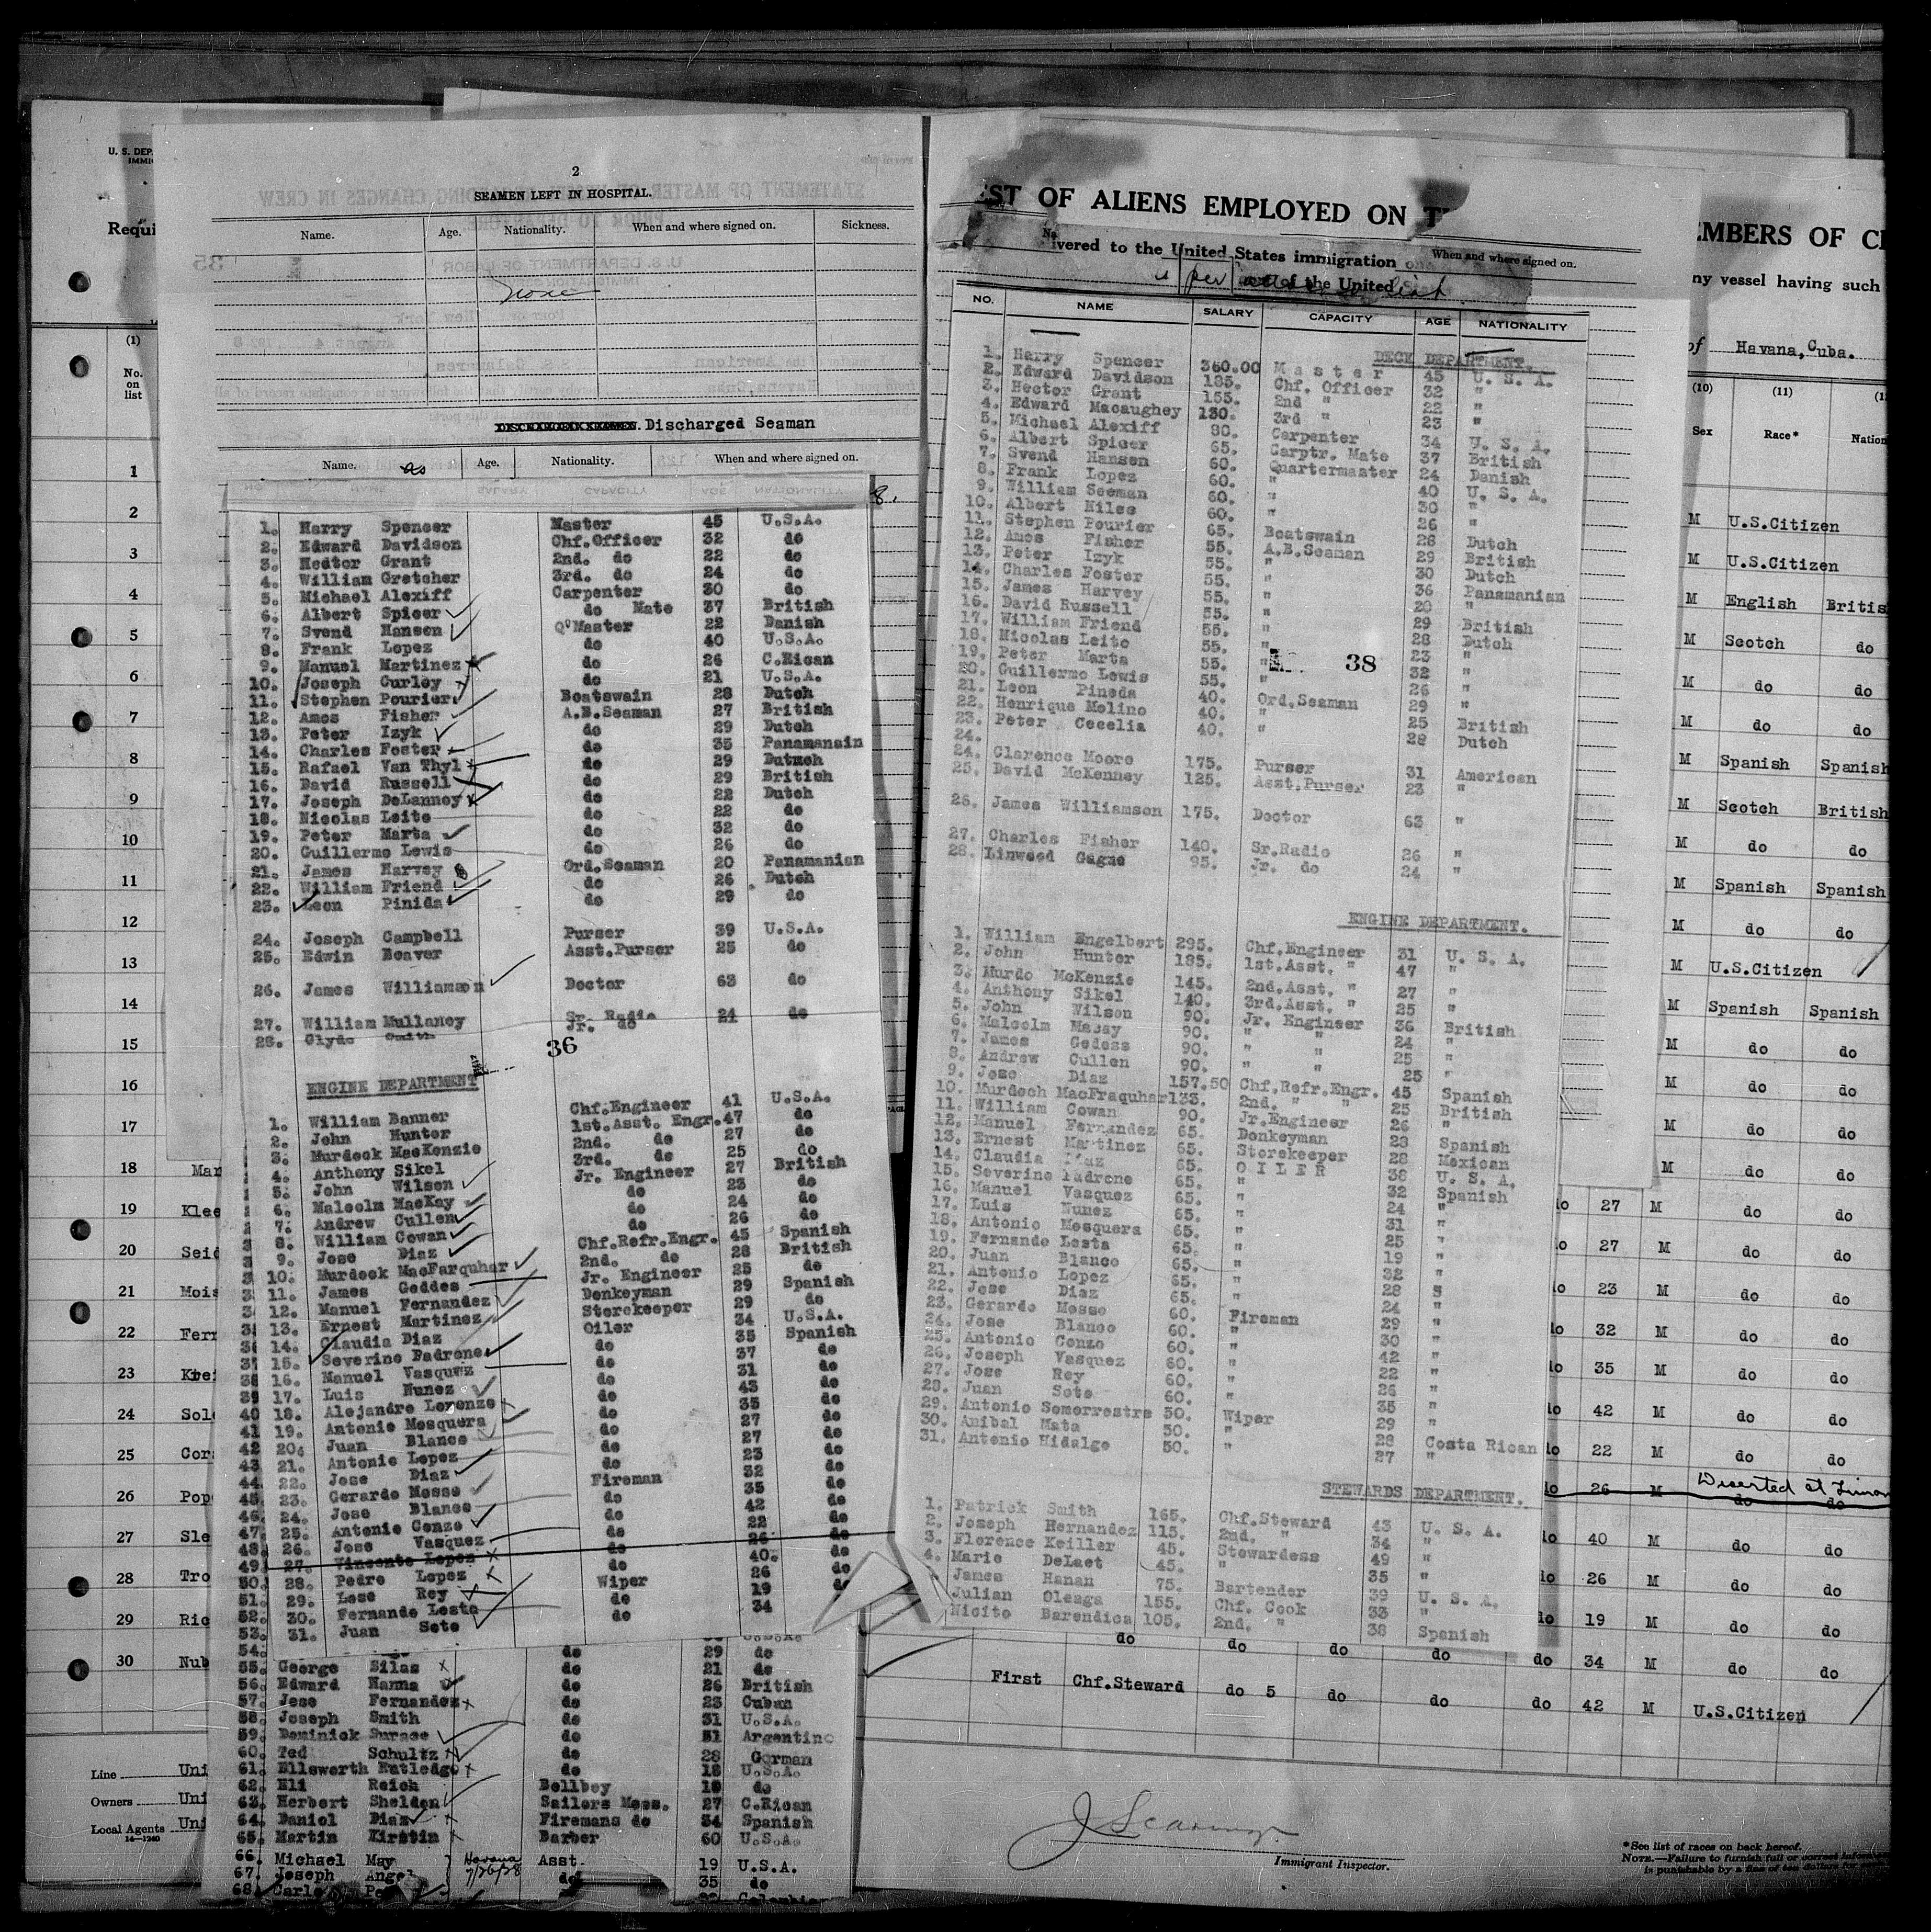 U. S. DEP
IMMI
Requi
(1)
No.
on
list
1
2
3
4
5
6
7
8
9
10
11
12
13
14
15
16
17
18 Mar
19 Klee
20 Seid
21 Mois
22 Ferr
23
24 Sol
25 Cor
26 Pop
27 Sle
28 Tro
29 Ric
30 Nub
Line Uni
Owners Uni
Local Agents Uni
14—1240
2
SEAMEN LEFT IN HOSPITAL.
Name. Age. Nationality. When and where signed on. Sickness.
None
Discharged Seaman
Name. Age. Nationality. When and where signed on.
1. Harry Spencer Master 45 U.S.A.
2. Edward Davidson Chf.Officer 32 do
3. Hector Grant 2nd. do 22 do
4. William Gretcher 3rd. do 24 do
5. Michael Alexiff Carpenter 30 do
6. Albert Spicer do Mate 37 British
7. Svend Hansen Q'Master 22 Danish
8. Frank Lopez do 40 U.S.A.
9. Manuel Martinez do 26 C.Rican
10. Joseph Curley do 21 U.S.A.
11. Stephen Pourier Boatswain 28 Dutch
12. Amos Fisher A.B.Seaman 27 British
13. Peter Izyk do 29 Dutch
14. Charles Foster do 35 Panamanain
15. Rafael Van Thyl do 29 Dutch
16. David Russell do 29 British
17. Joseph DeLannoy do 22 Dutch
18. Nicolas Leito do 22 do
19. Peter Marta do 32 do
20. Guillermo Lewis do 26 do
21. James Harvey Ord.Seaman 20 Panamanian
22. William Friend do 26 Dutch
23. Leon Pinida do 29 do
24. Joseph Campbell Purser 39 U.S.A.
25. Edwin Beaver Asst.Purser 25 do
26. James Williamson Doctor 63 do
27. William Mullaney Sr. Radio 24 do
28. Clyde Smith Jr. do
36
ENGINE DEPARTMENT
1. William Banner Chf.Engineer 41 U.S.A.
2. John Hunter 1st.Asst. Engr. 47 do
3. Murdock MacKenzie 2nd. do 27 do
4. Anthony Sikel 3rd. do 25 do
5. John Wilson Jr. Engineer 27 British
6. Malcolm MacKay do 23 do
7. Andrew Cullen do 24 do
8. William Cowan do 26 do
9. Jose Diaz Chf.Refr.Engr. 45 Spanish
10. Murdock MacFarquhar 2nd. do 28 British
11. James Geddes Jr. Engineer 25 do
12. Manuel Fernandez Donkeyman 29 Spanish
13. Ernest Martinez Storekeeper 29 do
14. Claudia Diaz Oiler 34 U.S.A.
15. Severino Padrone do 35 Spanish
16. Manuel Vasquez do 37 do
17. Luis Nunez do 31 do
18. Alejandro Lorenzo do 43 do
19. Antonio Mosquera do 35 do
20. Juan Blanco do 27 do
21. Antonio Lopez do 27 do
22. Jose Diaz do 23 do
23. Gerardo Mosso Fireman 32 do
24. Jose Blanco do 35 do
25. Antonio Conzo do 42 do
26. Jose Vasquez do 22 do
27. Vincente Lopez do 26 do
28. Pedro Lopez do 40. do
29. Lose Rey Wiper 26 do
30. Fernando Lesta do 19 do
31. Juan Soto do 34
54. do 29 do
55. George Silas do 21 do
56. Edward Hanna do 26 British
57. Jese Fernandez do 23 Cuban
58. Joseph Smith do 31 U.S.A.
59. Dominick Surace do 51 Argentino
60. Ted Schultz do 28 German
61. Ellsworth Rutledge do 18 U.S.A.
62. Eli Reich Bellboy 18 do
63. Herbert Sheldon Sailors Mess. 27 C.Rican
64. Daniel Diaz Firemans do 34 Spanish
65. Martin Kirstin Barber 60 U.S.A.
66. Michael May Havana Asst. 19 U.S.A.
67. Joseph Angel 7/26/28 do 35 do
68. Carlo
ST OF ALIENS EMPLOYED ON T
ivered to the United States immigration
When and where signed on.
per of the United
NO. NAME SALARY CAPACITY AGE NATIONALITY
DECK DEPARTMENT.
1. Harry Spencer 360.00 Master 45 U. S. A.
2. Edward Davidson 185. Chf. Officer 32 "
3. Hector Grant 155. 2nd " 22 "
4. Edward Macaughey 130. 3rd " 23 "
5. Michael Alexiff 80. Carpenter 34 U. S. A.
6. Albert Spicer 65. Carptr. Mate 37 British
7. Svend Hansen 60. Quartermaster 24 Danish
8. Frank Lopez 60. " 40 U. S. A.
9. William Seeman 60. " 30 "
10. Albert Niles 60. " 26 "
11. Stephen Pourier 65. Boatswain 28 Dutch
12. Amos Fisher 55. A.B.Seaman 29 British
13. Peter Izyk 55. " 30 Dutch
14. Charles Foster 55. " 36 Panamanian
15. James Harvey 55. " 20 "
16. David Russell 55. " 29 British
17. William Friend 55. " 28 Dutch
18. Nicolas Leito 55. " 23 "
19. Peter Marta 55. " 32 "
20. Guillermo Lewis 55. 26 "
38
21. Leon Pineda 40. Ord.Seaman 29 "
22. Henrique Molino 40. " 25 British
23. Peter Cecelia 40. " 28 Dutch
24.
24. Clarence Moore 175. Purser 31 American
25. David McKenney 125. Asst.Purser 23 "
26. James Williamson 175. Doctor 63 "
27. Charles Fisher 140. Sr.Radio 26 "
28. Linwood Gagne 95. Jr. do 24 "
ENGINE DEPARTMENT.
1. William Engelbert 295. Chf.Engineer 31 U. S. A.
2. John Hunter 185. 1st.Asst. " 47 "
3. Murdo McKenzie 145. 2nd.Asst. " 27 "
4. Anthony Sikel 140. 3rd.Asst. " 25 "
5. John Wilson 90. Jr. Engineer 36 British
6. Malcolm Macay 90. " " 24 "
7. James Gedess 90. " " 25 "
8. Andrew Cullen 90. " " 25 "
9. Jose Diaz 157.50 Chf.Refr.Engr. 45 Spanish
10. Murdoch MacFraquhar 133. 2nd. " " 25 British
11. William Cowan 90. Jr.Engineer 26 "
12. Manuel Fernandez 65. Donkeyman 28 Spanish
13. Ernest Martinez 65. Storekeeper 28 Mexican
14. Claudia Diaz 65. OILER 38 U. S. A.
15. Severine Padrone 65. " 32 Spanish
16. Manuel Vasquez 65. " 24 "
17. Luis Nunez 65. " 31 "
18. Antonio Mosquera 65. " 25 "
19. Fernando Lesta 65. " 19 "
20. Juan Blanco 65. " 32 "
21. Antonio Lopez 65. " 28 S
22. Jose Diaz 65. " 24 "
23. Gerardo Mosso 60. Fireman 29 "
24. Jose Blanco 60. " 30 "
25. Antonio Conzo 60. " 42 "
26. Joseph Vasquez 60. " 22 "
27. Jose Rey 60. " 26 "
28. Juan Soto 60. " 35 "
29. Antonio Somorrostro 50. Wiper 29 "
30. Anibal Mata 50. " 28 Costa Rican
31. Antonio Hidalgo 50. " 27 "
STEWARDS DEPARTMENT.
1. Patrick Smith 165. Chf.Steward 43 U. S. A.
2. Joseph Hernandez 115. 2nd. " 34 "
3. Florence Keiller 45. Stewardess 49 "
4. Marie DeLaet 45. " 35 "
James Hanan 75. Bartender 39 U. S. A.
Julian Oleaga 155. Chf. Cook 33 "
Nicito Barendica 105. 2nd. " 38 Spanish
do do do do do 34 M do do
First Chf.Steward do 5 do do do 42 M U.S.Citizen
Immigrant Inspector.
EMBERS OF C
ny vessel having such
of Havana, Cuba.
(10) (11)
Sex Race* Nation
M U.S.Citizen
M U.S.Citizen
M English Britis
M Scotch do
M do do
M do do
M Spanish Spanish
M Scotch British
M do do
M Spanish Spanish
M do do
M U.S.Citizen
M Spanish Spanish
M do do
M do do
M do do
M do do
do 27 M do do
do 27 M do do
do 23 M do do
do 32 M do do
do 35 M do do
do 42 M do do
do 22 M do do
do 26 M Deserted at Limon do do
do 40 M do do
do 26 M do do
do 19 M do do
*See list of races on back hereof.
NOTE.—Failure to furnish full or correct
is punishable by a fine of ten dollars for